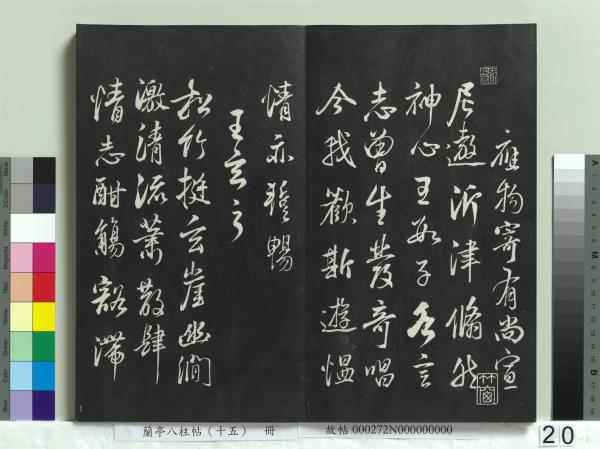 應物寄有尚宣
尼遨沂津翛然
神心王數子各言
志曾生發奇唱
今我歡斯遊慍
情亦暫暢
王玄之
松竹挺玄崖幽澗
激清流蕭散肆
情志酣觴豁滯
竹窗
蘭亭八柱帖（十五） 冊
故帖 000272N000000000
20